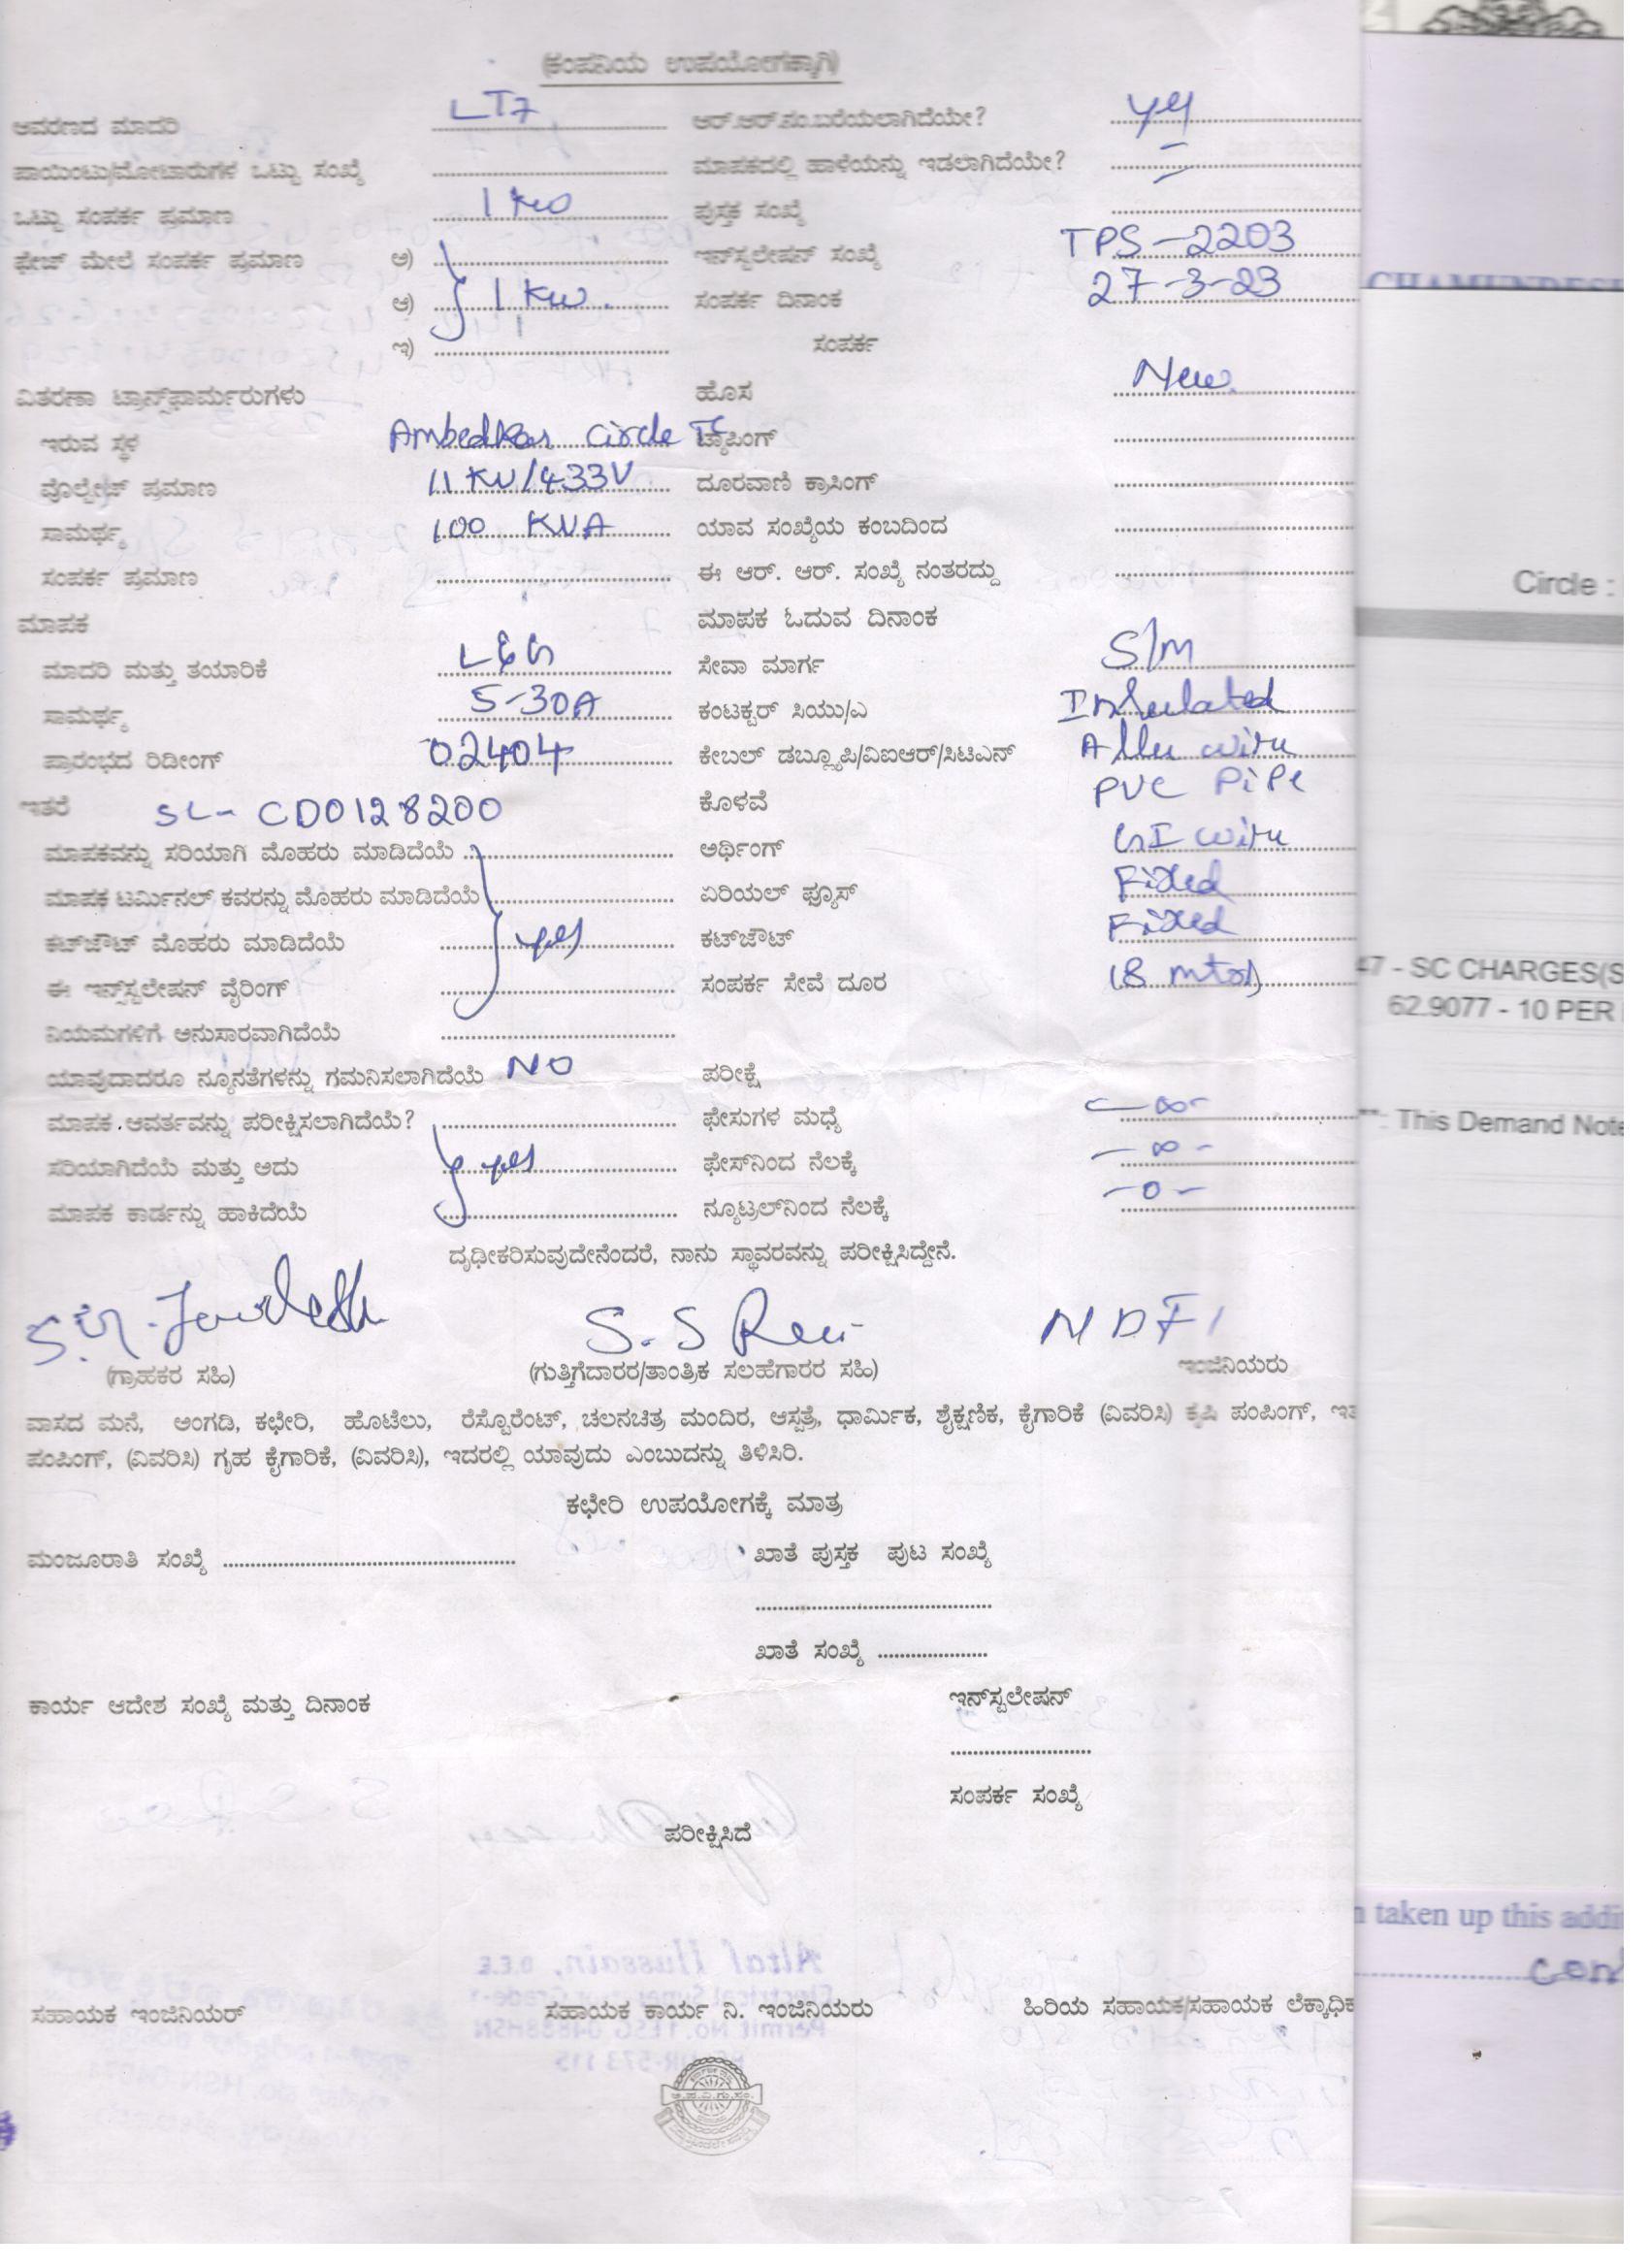 (ಕಂಪನಿಯ ಉಪಯೋಗಕ್ಕಾಗಿ)
ಆವರಣದ ಮಾದರಿ LT7 ಆರ್.ಆರ್.ನಂ.ಬರೆಯಲಾಗಿದೆಯೇ? yes
ಪಾಯಿಂಟು/ಮೋಟಾರುಗಳ ಒಟ್ಟು ಸಂಖ್ಯೆ ಮಾಪಕದಲ್ಲಿ ಹಾಳೆಯನ್ನು ಇಡಲಾಗಿದೆಯೇ? =
ಒಟ್ಟು ಸಂಪರ್ಕ ಪ್ರಮಾಣ 1 kw ಪುಸ್ತಕ ಸಂಖ್ಯೆ
ಫೇಜ್ ಮೇಲೆ ಸಂಪರ್ಕ ಪ್ರಮಾಣ ಅ) ಇನ್‌ಸ್ಟಲೇಷನ್ ಸಂಖ್ಯೆ TPS-2203
ಆ) 1 Kw. ಸಂಪರ್ಕ ದಿನಾಂಕ 27-3-23
ಇ) ಸಂಪರ್ಕ
ವಿತರಣಾ ಟ್ರಾನ್ಸ್‌ಫಾರ್ಮರುಗಳು ಹೊಸ New
ಇರುವ ಸ್ಥಳ Ambedkar circle TC ಟ್ಯಾಪಿಂಗ್
ವೊಲ್ಟೇಜ್ ಪ್ರಮಾಣ 11 KV/433V ದೂರವಾಣಿ ಕ್ರಾಸಿಂಗ್
ಸಾಮರ್ಥ್ಯ 100 KVA ಯಾವ ಸಂಖ್ಯೆಯ ಕಂಬದಿಂದ
ಸಂಪರ್ಕ ಪ್ರಮಾಣ ಈ ಆರ್. ಆರ್. ಸಂಖ್ಯೆ ನಂತರದ್ದು
ಮಾಪಕ ಮಾಪಕ ಓದುವ ದಿನಾಂಕ
ಮಾದರಿ ಮತ್ತು ತಯಾರಿಕೆ L&G ಸೇವಾ ಮಾರ್ಗ S/M
ಸಾಮರ್ಥ್ಯ 5-30A ಕಂಟಕ್ಟರ್ ಸಿಯು/ಎ Insulated
ಪ್ರಾರಂಭದ ರಿಡೀಂಗ್ 02404 ಕೇಬಲ್ ಡಬ್ಲ್ಯೂಪಿ/ವಿಐಆರ್/ಸಿಟಿಎನ್ Allu wire
ಇತರೆ SL- CD0128200 ಕೊಳವೆ PVC PiPe
ಮಾಪಕವನ್ನು ಸರಿಯಾಗಿ ಮೊಹರು ಮಾಡಿದೆಯೆ ಅರ್ಥಿಂಗ್ GI wire
ಮಾಪಕ ಟರ್ಮಿನಲ್ ಕವರನ್ನು ಮೊಹರು ಮಾಡಿದೆಯೆ ಏರಿಯಲ್ ಫ್ಯೂಸ್ Fixed
ಕಟ್‌ಜೌಟ್ ಮೊಹರು ಮಾಡಿದೆಯೆ yes ಕಟ್‌ಜೌಟ್ Fixed
ಈ ಇನ್‌ಸ್ಟಲೇಷನ್ ವೈರಿಂಗ್ ಸಂಪರ್ಕ ಸೇವೆ ದೂರ 18 mtrs
ನಿಯಮಗಳಿಗೆ ಅನುಸಾರವಾಗಿದೆಯೆ
ಯಾವುದಾದರೂ ನ್ಯೂನತೆಗಳನ್ನು ಗಮನಿಸಲಾಗಿದೆಯೆ NO ಪರೀಕ್ಷೆ
ಮಾಪಕ ಆವರ್ತವನ್ನು ಪರೀಕ್ಷಿಸಲಾಗಿದೆಯೆ? ಫೇಸುಗಳ ಮಧ್ಯೆ -∞-
ಸರಿಯಾಗಿದೆಯೆ ಮತ್ತು ಅದು yes ಫೇಸ್‌ನಿಂದ ನೆಲಕ್ಕೆ -∞-
ಮಾಪಕ ಕಾರ್ಡನ್ನು ಹಾಕಿದೆಯೆ ನ್ಯೂಟ್ರಲ್‌ನಿಂದ ನೆಲಕ್ಕೆ -0-
ದೃಢೀಕರಿಸುವುದೇನೆಂದರೆ, ನಾನು ಸ್ಥಾವರವನ್ನು ಪರೀಕ್ಷಿಸಿದ್ದೇನೆ.
(ಗ್ರಾಹಕರ ಸಹಿ) (ಗುತ್ತಿಗೆದಾರರ/ತಾಂತ್ರಿಕ ಸಲಹೆಗಾರರ ಸಹಿ) ಇಂಜಿನಿಯರು
ವಾಸದ ಮನೆ, ಅಂಗಡಿ, ಕಛೇರಿ, ಹೊಟೆಲು, ರೆಸ್ಟೊರೆಂಟ್, ಚಲನಚಿತ್ರ ಮಂದಿರ, ಆಸ್ಪತ್ರೆ, ಧಾರ್ಮಿಕ, ಶೈಕ್ಷಣಿಕ, ಕೈಗಾರಿಕೆ (ವಿವರಿಸಿ) ಕೃಷಿ ಪಂಪಿಂಗ್,
ಪಂಪಿಂಗ್, (ವಿವರಿಸಿ) ಗೃಹ ಕೈಗಾರಿಕೆ, (ವಿವರಿಸಿ), ಇದರಲ್ಲಿ ಯಾವುದು ಎಂಬುದನ್ನು ತಿಳಿಸಿರಿ.
ಕಛೇರಿ ಉಪಯೋಗಕ್ಕೆ ಮಾತ್ರ
ಮಂಜೂರಾತಿ ಸಂಖ್ಯೆ ಖಾತೆ ಪುಸ್ತಕ ಪುಟ ಸಂಖ್ಯೆ
ಖಾತೆ ಸಂಖ್ಯೆ
ಕಾರ್ಯ ಆದೇಶ ಸಂಖ್ಯೆ ಮತ್ತು ದಿನಾಂಕ ಇನ್‌ಸ್ಟಲೇಷನ್
ಸಂಪರ್ಕ ಸಂಖ್ಯೆ
ಪರೀಕ್ಷಿಸಿದೆ
ಸಹಾಯಕ ಇಂಜಿನಿಯರ್ ಸಹಾಯಕ ಕಾರ್ಯ ನಿ. ಇಂಜಿನಿಯರು ಹಿರಿಯ ಸಹಾಯಕ/ಸಹಾಯಕ ಲೆಕ್ಕಾಧಿಕ
Circle :
47 - SC CHARGES(S
62.9077 - 10 PER
**: This Demand Note
n taken up this addi